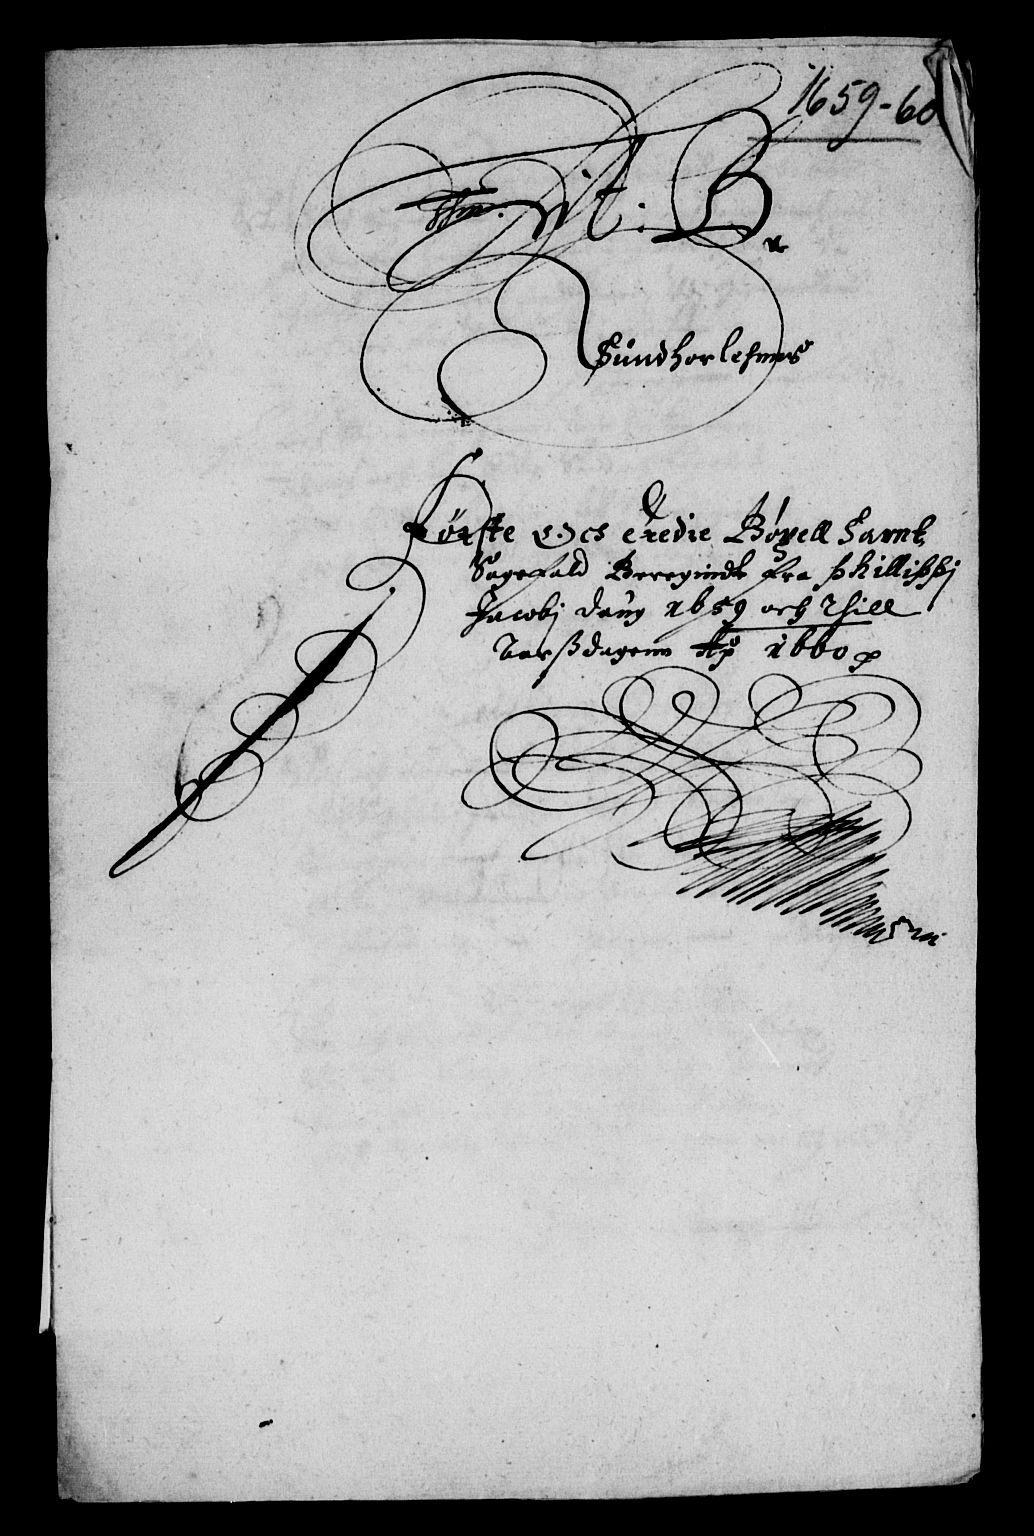 1659-60
Lit. B.
Sundhorlehnns
Første och tredie Bøxell Sampt
Sagefald Beregindt fra Phillippj
Jacobj daug 1659 och Thill
Aarßdagenn Ao 1660